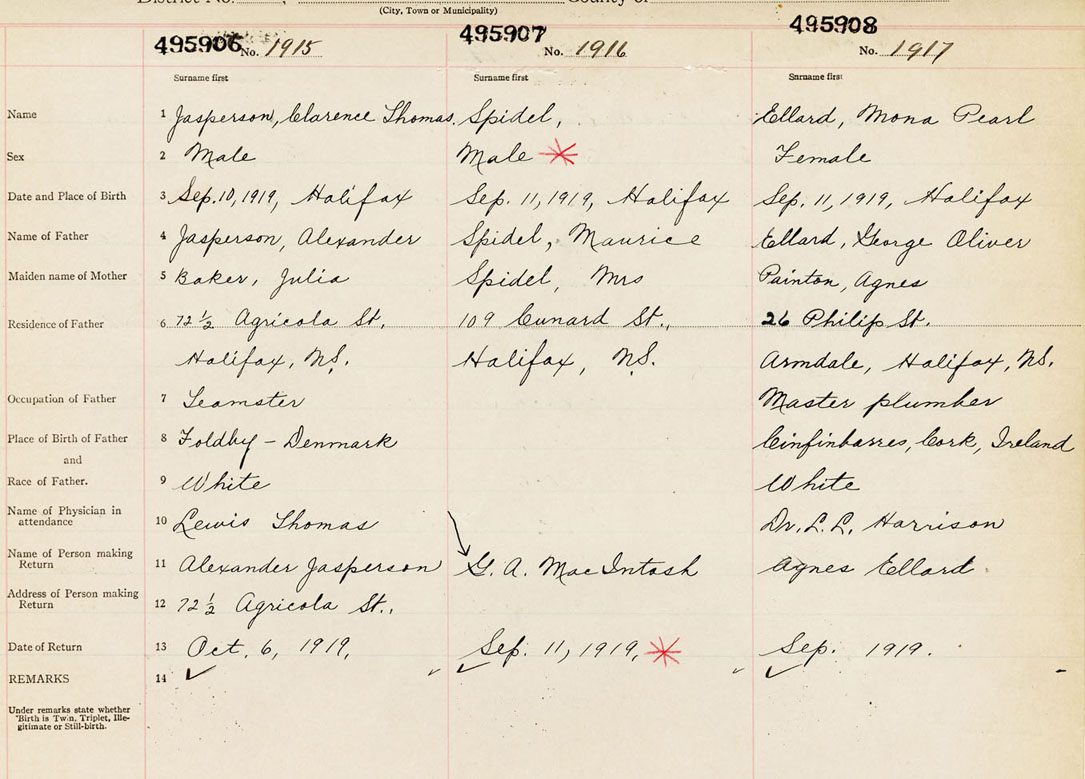 (City, Town or Municipality)
495906 No. 1915 495907 No. 1916 495908 No. 1917
Surname first Surname first Surname first
Name 1 Jasperson, Clarence Thomas. Spidel, Ellard, Mona Pearl
Sex 2 Male Male Female
Date and Place of Birth 3 Sep. 10, 1919, Halifax Sep. 11, 1919, Halifax Sep. 11, 1919, Halifax
Name of Father 4 Jasperson, Alexander Spidel, Maurice Ellard, George Oliver
Maiden name of Mother 5 Baker, Julia Spidel, Mrs Painton, Agnes
Residence of Father 6 72 1/2 Agricola St. 109 Cunard St., 26 Philip St.
Halifax, N.S. Halifax, N.S. Armdale, Halifax, N.S.
Occupation of Father 7 Teamster Master plumber
Place of Birth of Father 8 Foldby - Denmark Cinfinbarres, Cork, Ireland
and
Race of Father. 9 White White
Name of Physician in attendance 10 Lewis Thomas Dr. L. L. Harrison
Name of Person making Return 11 Alexander Jasperson G. A. MacIntosh Agnes Ellard
Address of Person making Return 12 72 1/2 Agricola St.,
Date of Return 13 Oct. 6, 1919, Sep. 11, 1919, Sep. 1919.
REMARKS 14
Under remarks state whether
Birth is Twin, Triplet, Ille-
gitimate or Still-birth.